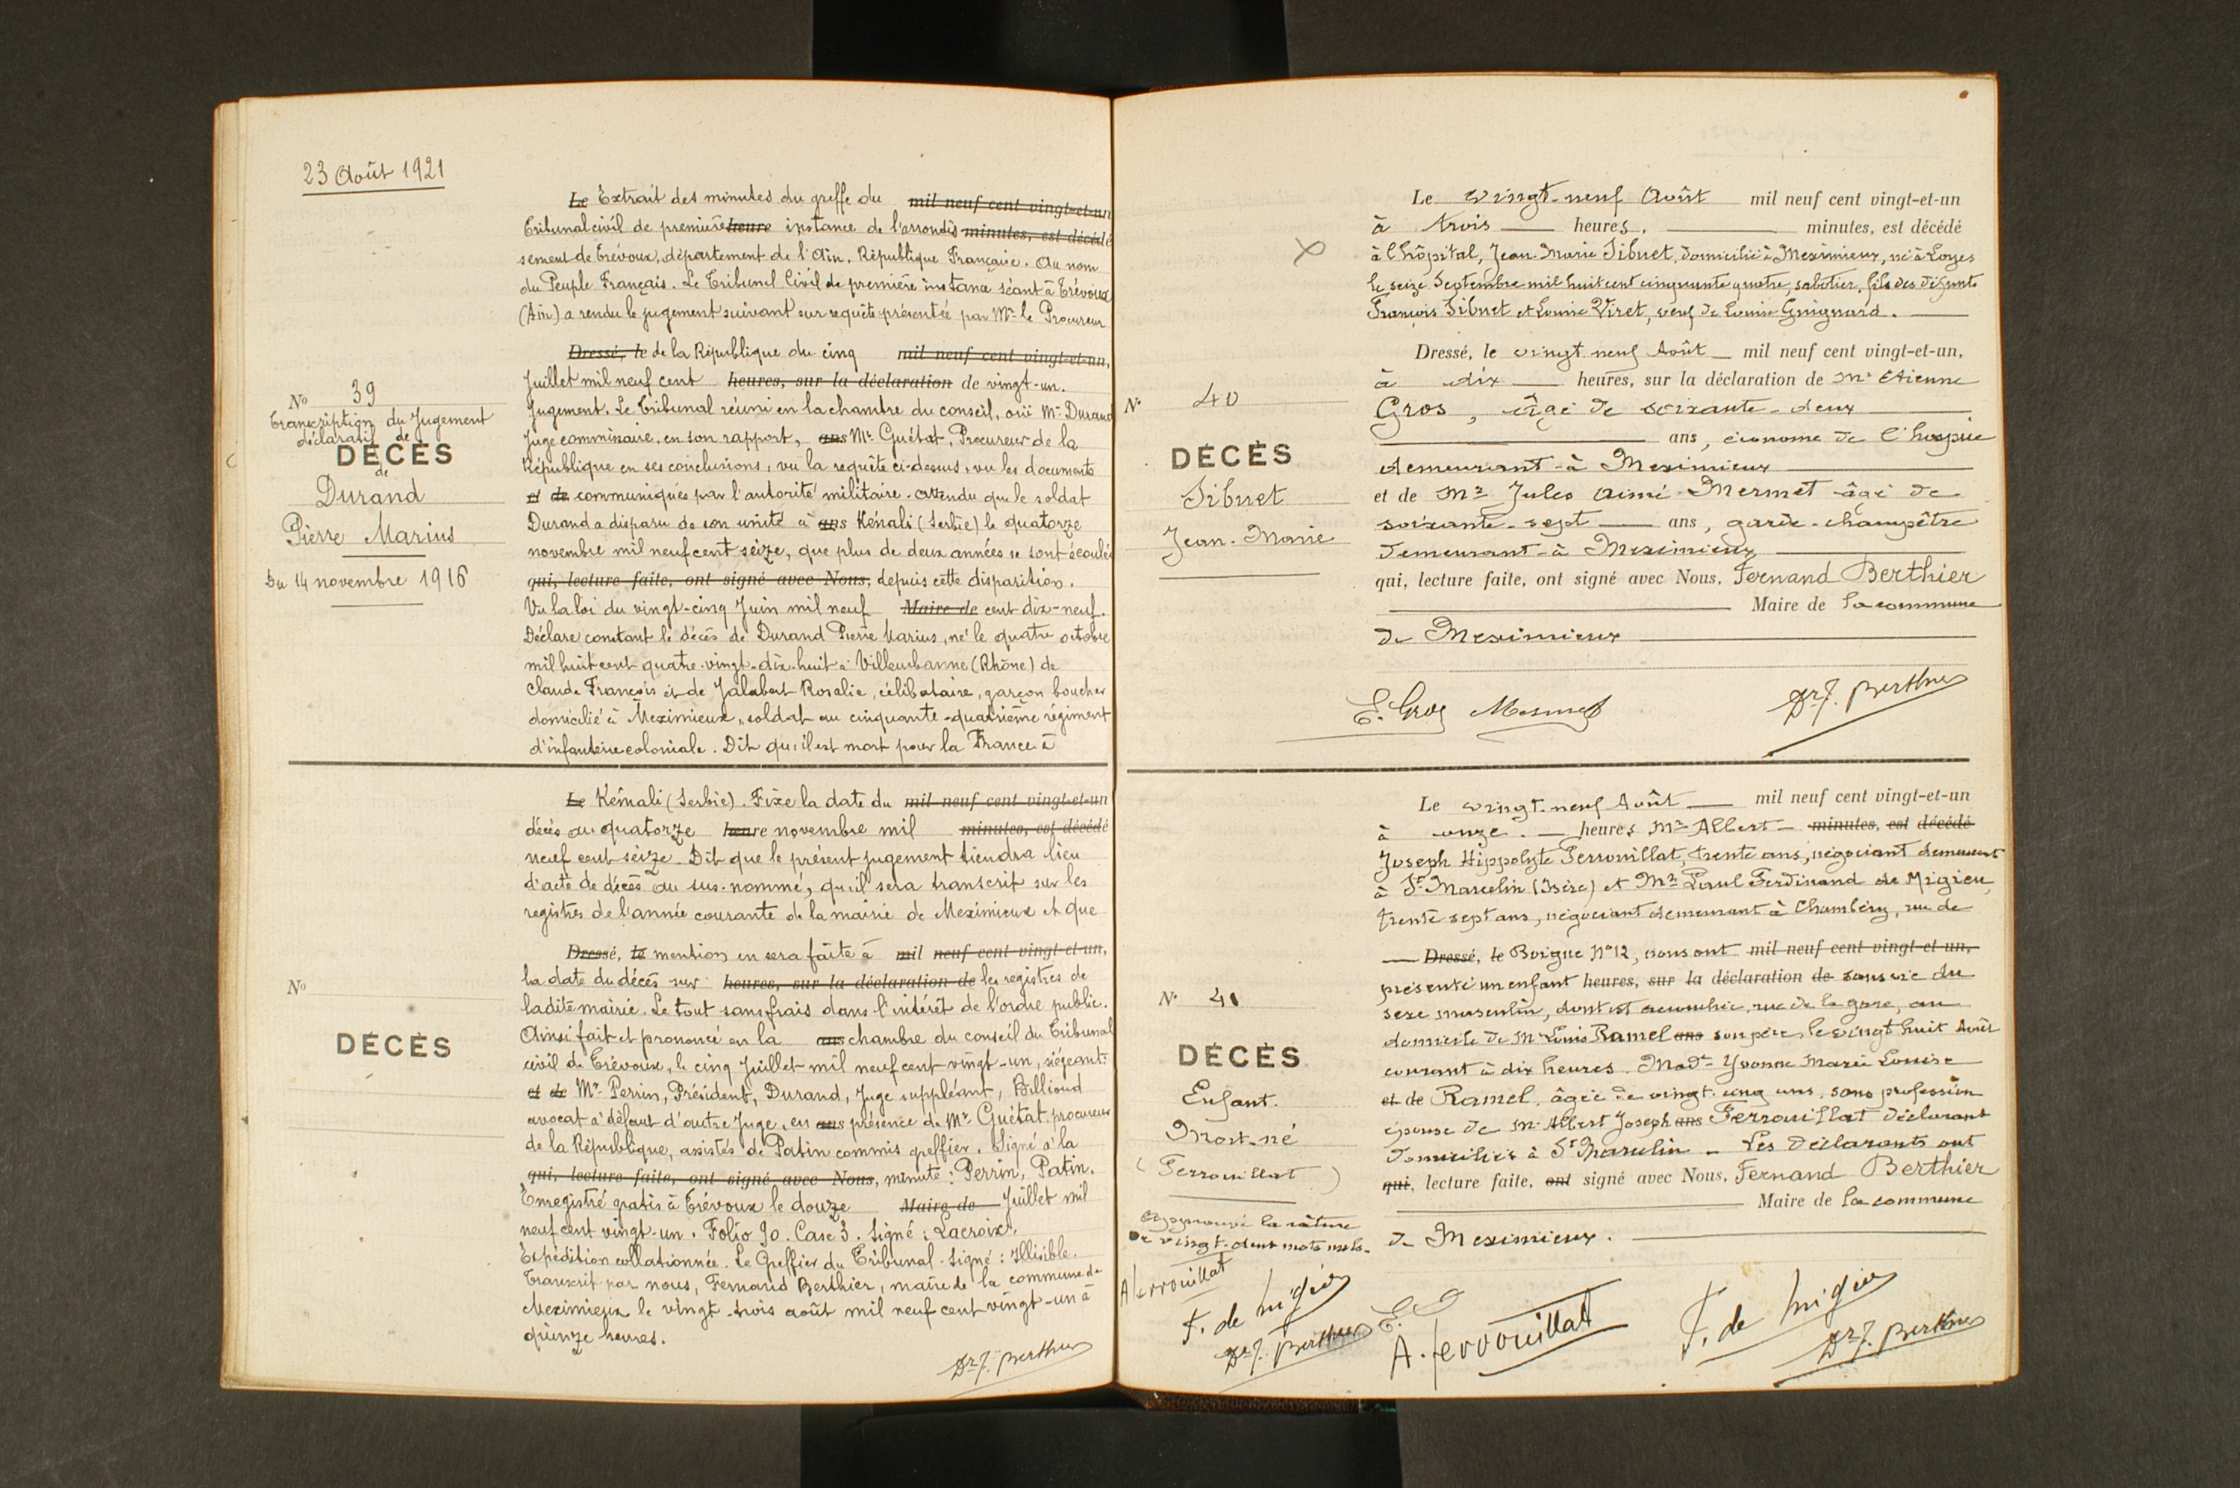 23 Août 1921
Le Extrait des minutes du greffe du mil neuf cent vingt-et-un
Tribunal civil de première heure instance de l'arrondis minutes, est décédé
sement de Trévoux, département de l'Ain. République Française. Au nom
du Peuple Français. Le Tribunal Civil de première instance séant à Trévoux
(Ain) a rendu le jugement suivant sur requête présentée par Mr le Procureur
Dressé, le de la République du cinq mil neuf cent vingt-et-un,
Juillet mil neuf cent heures, sur la déclaration de vingt-un.
Jugement. Le Tribunal réuni en la chambre du conseil, ouï Mr Durand
Juge commissaire, en son rapport, ans Mr Guétat, Procureur de la
République en ses conclusions, vu la requête ci-dessus, vu les documents
et de communiqués par l'autorité militaire. Attendu que le soldat
Durand a disparu de son unité à ans Kénali (Serbie) le quatorze
novembre mil neuf cent seize, que plus de deux années se sont écoulées
qui, lecture faite, ont signé avec Nous, depuis cette disparition.
Vu la loi du vingt-cinq Juin mil neuf Maire de cent dix-neuf.
Déclare constant le décès de Durand Pierre Marius, né le quatre octobre
mil huit cent quatre-vingt-dix-huit à Villeurbanne (Rhône) de
Claude François et de Jalabert Rosalie, célibataire, garçon boucher
domicilié à Meximieux, soldat au cinquante-quatrième régiment
d'infanterie coloniale. Dit qu'il est mort pour la France à
No 39
Transcription du Jugement
déclaratif de
DÉCÈS
de
Durand
Pierre Marius
Du 14 novembre 1916
Le Kénali (Serbie). Fixe la date du mil neuf cent vingt-et-un
décès au quatorze heure novembre mil minutes, est décédé
neuf cent seize. Dit que le présent jugement tiendra lieu
d'acte de décès au sus-nommé, qu'il sera transcrit sur les
registres de l'année courante de la mairie de Meximieux et que
Dressé, le mention en sera faite à mil neuf cent vingt-et-un,
la date du décès sur heures, sur la déclaration de les registres de
ladite mairie. Le tout sans frais dans l'intérêt de l'ordre public.
Ainsi fait et prononcé en la ans chambre du conseil du Tribunal
civil de Trévoux, le cinq Juillet mil neuf cent vingt-un, siégeant:
et de Mr Perrin, Président, Durand, Juge suppléant, Billioud
avocat à défaut d'autre Juge, en ans présence de Mr Guétat, procureur
de la République, assistés de Patin commis greffier. Signé à la
qui, lecture faite, ont signé avec Nous, minute: Perrin, Patin.
Enregistré gratis à Trévoux le douze Maire de Juillet mil
neuf cent vingt-un. Folio 90. Case 3. Signé: Lacroix.
Expédition collationnée. Le Greffier du Tribunal. Signé: Illisible.
Transcrit par nous, Fernand Berthier, maire de la commune de
Meximieux le vingt-trois août mil neuf cent vingt-un à
quinze heures.
Dr F. Berthier
No
DÉCÈS
Le vingt-neuf Août mil neuf cent vingt-et-un
à trois heures, minutes, est décédé
à l'hôpital, Jean-Marie Sibuet, domicilié à Meximieux, né à Loyes
le seize Septembre mil huit cent cinquante quatre, sabotier, fils des défunts
François Sibuet et Louise Viret, veuf de Louise Guignard.
Dressé, le vingt neuf Août mil neuf cent vingt-et-un,
à dix heures, sur la déclaration de Mr Etienne
Gros, âgé de soixante-deux
ans, économe de l'hospice
demeurant à Meximieux
et de Mr Jules Aimé Mermet âgé de
soixante-sept ans, garde-champêtre
demeurant à Meximieux
qui, lecture faite, ont signé avec Nous, Fernand Berthier
Maire de la commune
de Meximieux
E. Gros Mermet Dr F. Berthier
No 40
DÉCÈS
Sibuet
Jean-Marie
Le vingt-neuf Août mil neuf cent vingt-et-un
à onze heures Mr Albert minutes, est décédé
Joseph Hippolyte Ferrouillat, trente ans, négociant demeurant
à St Marcelin (Isère) et Mr Paul Ferdinand de Migieu,
trente sept ans, négociant demeurant à Chambéry, rue de
Dressé, le Boigne No 12, nous ont mil neuf cent vingt-et-un,
présenté un enfant heures, sur la déclaration de sans vie du
sexe masculin, dont est accouchée, rue de la gare, au
domicile de Mr Louis Ramel ans son père, le vingt huit Août
courant à dix heures. Made Yvonne Marie Louise
et de Ramel, âgée de vingt-cinq ans, sans profession
épouse de Mr Albert Joseph ans Ferrouillat déclarant
domiciliés à St Marcelin. Les déclarants ont
qui, lecture faite, ont signé avec Nous, Fernand Berthier
Maire de la commune
de Meximieux.
A. Ferrouillat F. de Migieu Dr F. Berthier
No 41
DÉCÈS
Enfant
Mort-né
(Ferrouillat)
Approuvé la râture
de vingt-deux mots nuls.
A Ferrouillat
F. de Migieu
Dr F. Berthier